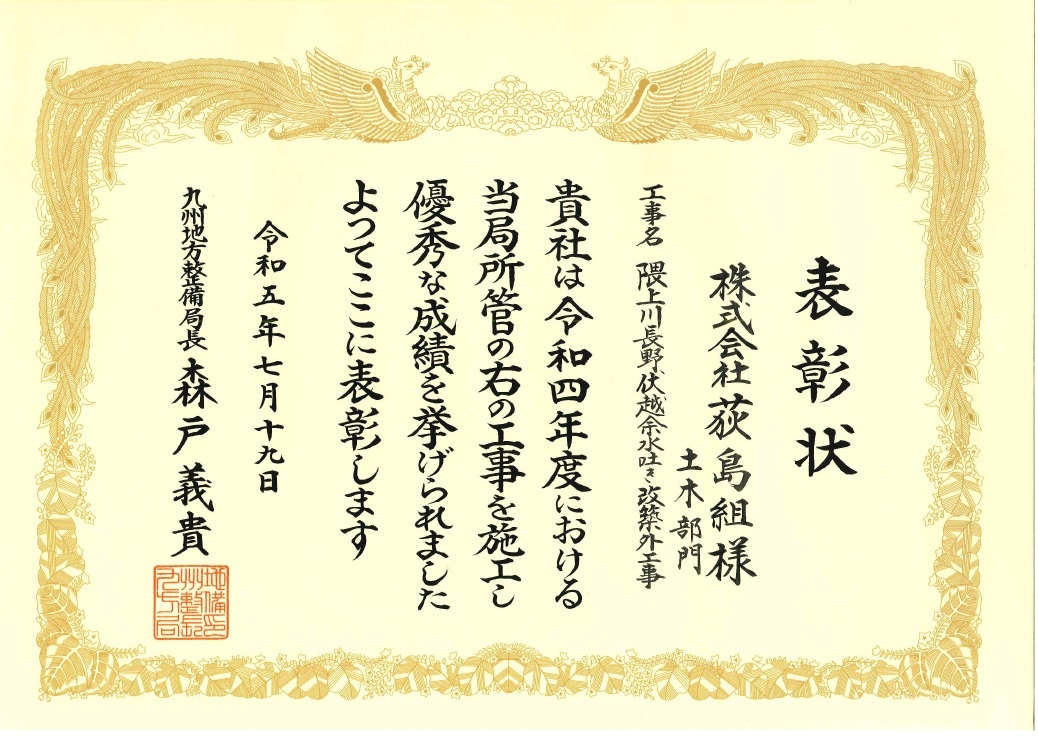 表彰状
株式会社荻島組様
土木部門
工事名 隈上川長野伏越余水吐き改築外工事
貴社は令和四年度における
当局所管の右の工事を施工し
優秀な成績を挙げられました
よってここに表彰します
令和五年七月十九日
九州地方整備局長 森戸義貴